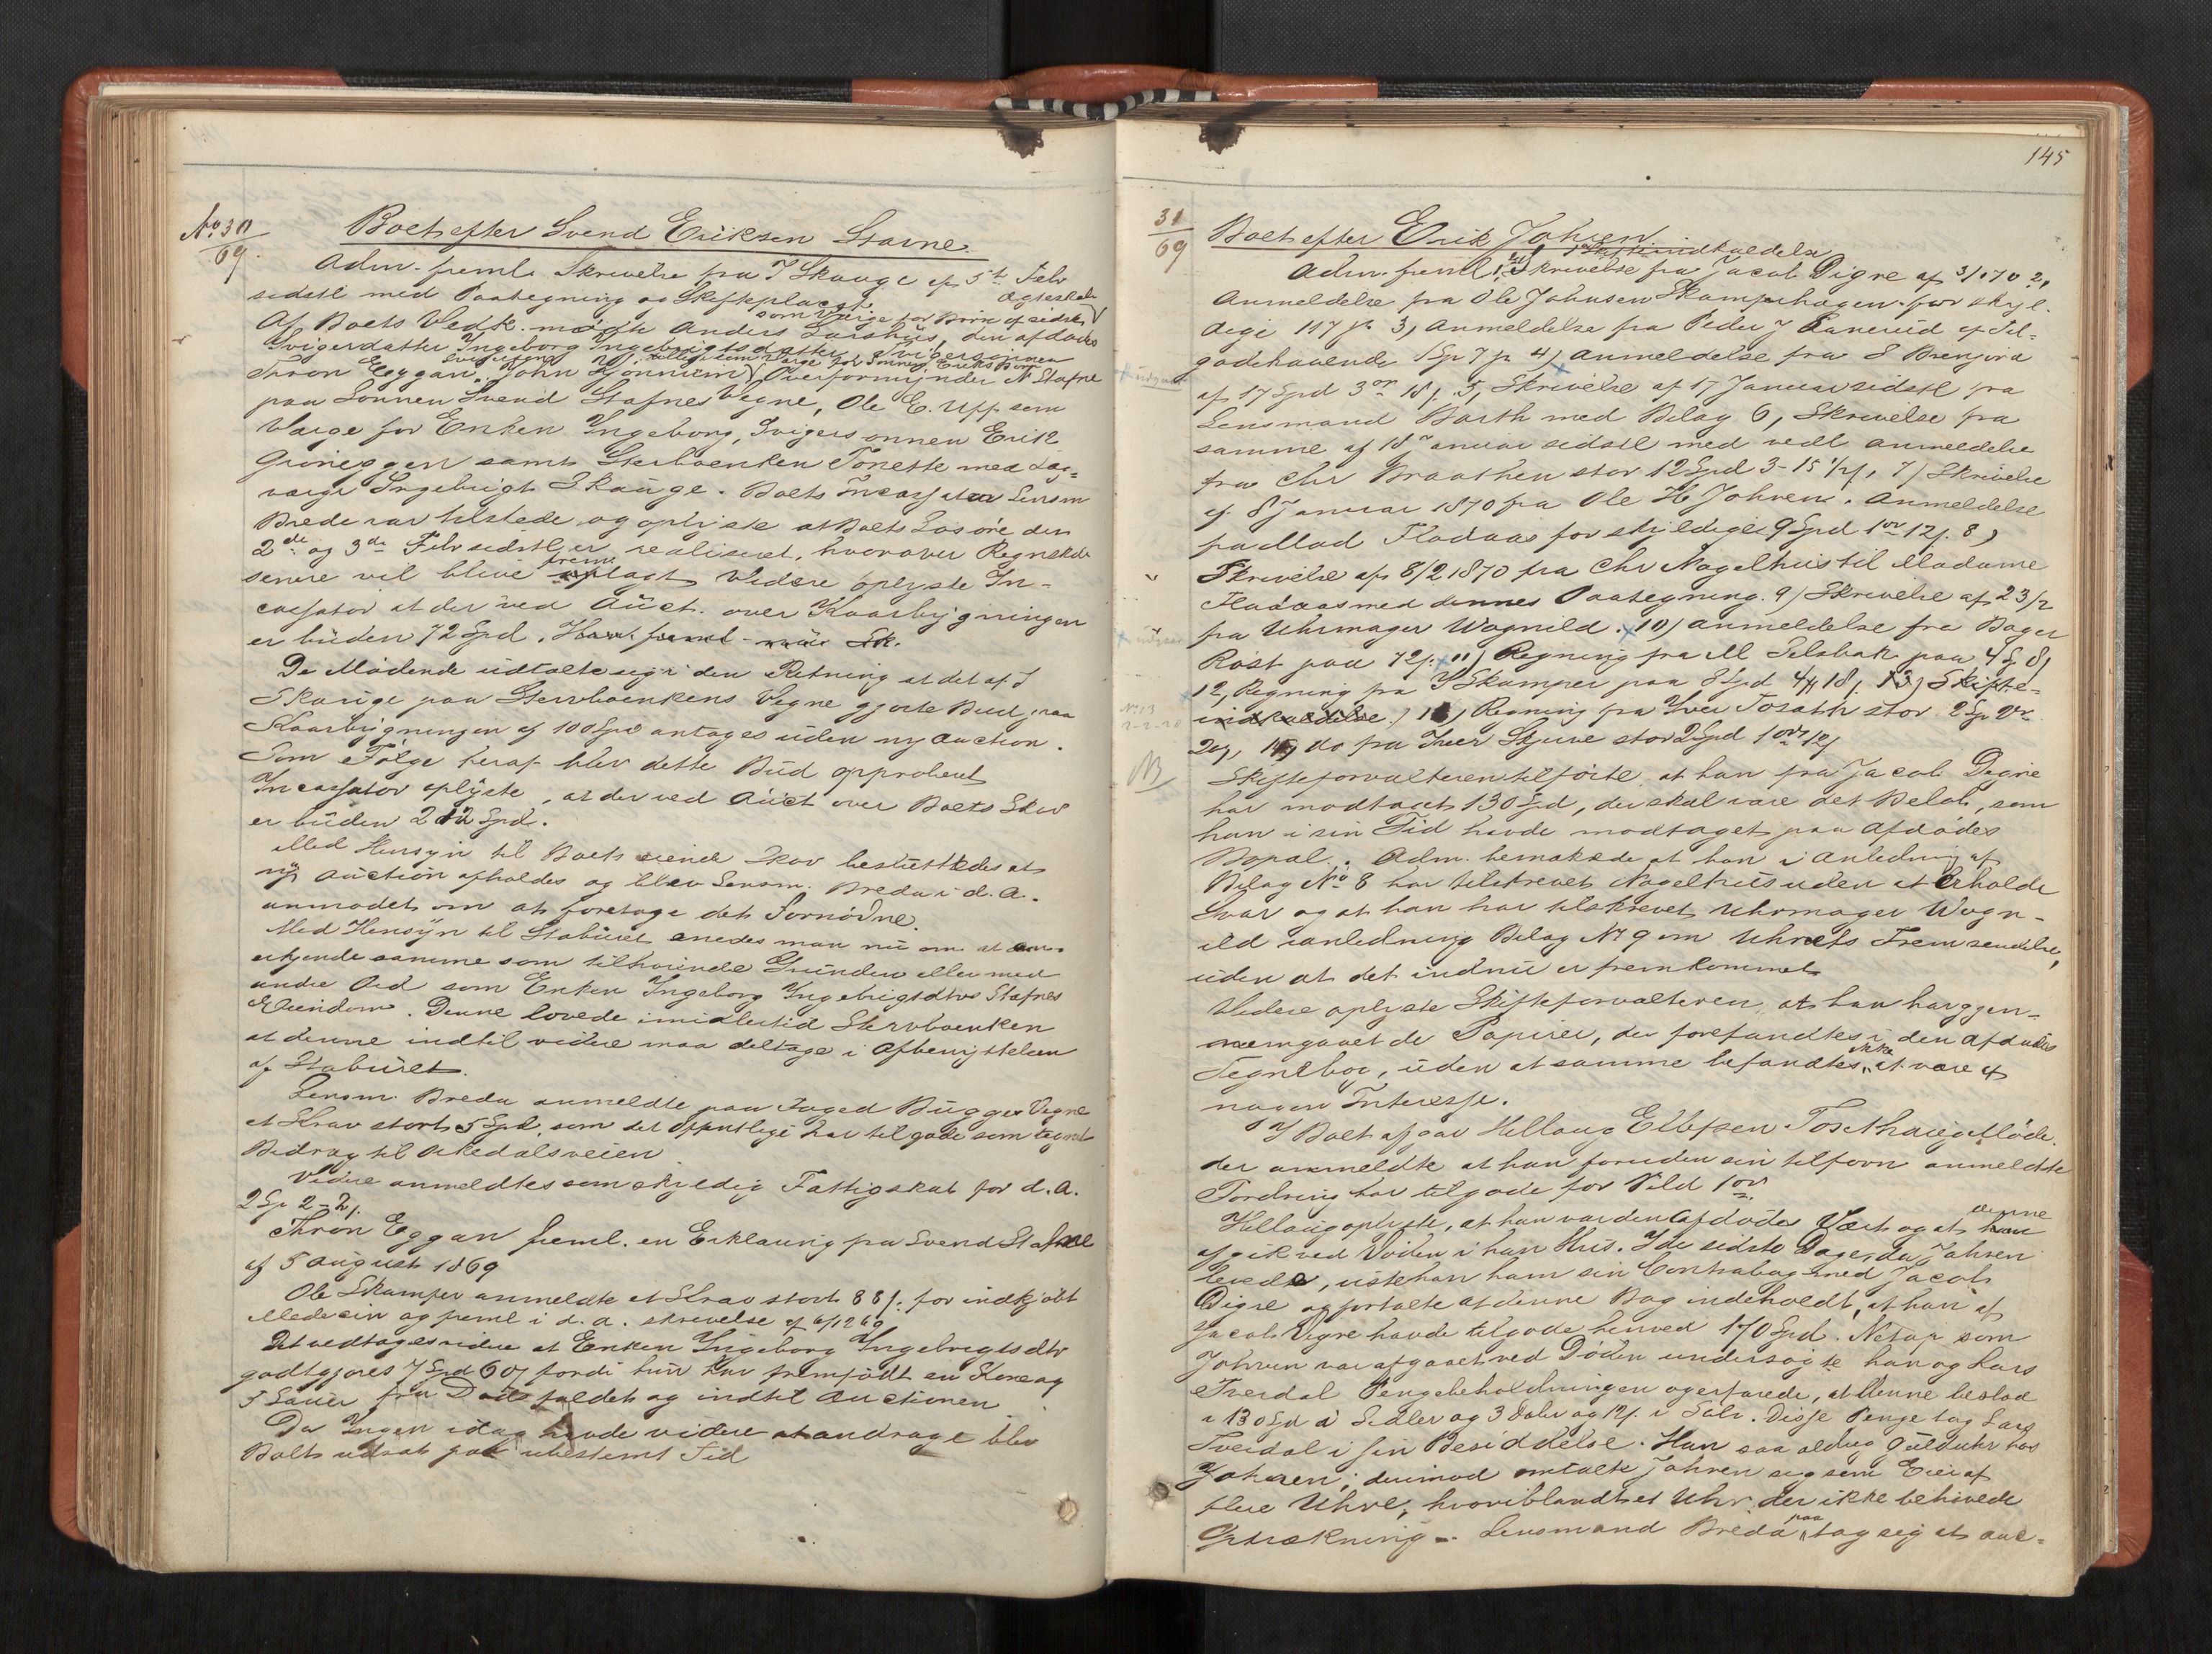 No 30
69.
Boet efter Svend Eriksen Stavne
Adm. freml. Skrivelse fra I Skauge af 5t Febr
sidstl med Paategning og Skifteplacat.
Ægteskab
som Værge for Børn af sidste
Af Boets Vedk. mødte Anders Larshus, den afdødes
Svigerdatter Ingeborg Ingebrigtsdatter, Svigersønnen
Thron Eggan, Svigersøn John Hjønnum tillige som Værge for Sønnen Eriks Børn, Overformynder N Stafne
paa Sønnen Svend Stafnes Vegne, Ole E. Uff som
Værge for Enken Ingeborg, Svigersønnen Erik
Grøneggen samt Stervboenken Tonette med Lag-
værge Ingebrigt Skauge. Boets Incassator Lensm
Breda var tilstede og oplyste at Boets Løsøre den
2de og 3de Febr sidstl er realiseret, hvorover Regnskab
senere vil blive fremlagt. Videre oplyste In-
cassator at der ved Auct. over Kaarbygningen
er buden 72 Spd.
De Mødende udtalte sig i den Retning at det af I
Skauge paa Stervboenkens Vegne gjorte Bud paa
Kaarbygningen af 100 Spd antages uden ny Auction.
Som Følge heraf blev dette Bud approberet
Incassator oplyste, at der ved Auct over Boets Skov
er buden 212 Spd.
Med Hensyn til Boets eiende Skov besluttedes at
ny Auction afholdes og blev Lensm. Breda i d. A.
anmodet om at foretage det Fornødne.
Med Hensyn til Stabburet enedes man nu om at an-
erkjende samme som tilhørende Grunden eller med
andre Ord som Enken Ingeborg Ingebrigtsdtrs Stafnes
Eiendom. Denne lovede imidlertid Stervboenken
at denne indtil videre maa deltage i Afbenyttelsen
af Staburet.
Lensm. Breda anmeldte paa Foged Bugges Vegne
et Krav stort 5 Spd, som det Offentlige har tilgode som tegnet
Bidrag til Orkedalsveien
Videre anmeldtes som skyldig Fattigskat for d. A.
2 Sp 2 - 21.
Thron Eggan freml. en Erklæring fra Svend Stafne
af 5 August 1869
Ole Skamper anmeldte et Krav stort 88 s. for indkjøbt
Medecin og freml i d. A. skrivelse af 6/12 69
Det vedtages videre at Enken Ingeborg Ingebrigtsdtr
godtgjøres 7 Spd 60 s fordi hun har fremfødt en Ko og
5 Sauer fra Dødsfaldet og indtil Auctionen
Da Ingen idag havde videre at andrage blev
Boets udsat paa ubestemt Tid
145
31
69
Boet efter Erik Johsen
Adm. freml 1, Skrivelse fra Jacob Digre af 3/1 70 2,
Anmeldelse fra Ole Johnsen Skamferhagen for skyl-
dige 117 s. 3, Anmeldelse fra Peder J Lanerud af Til-
godehavende 1 Sp 7 s 4, Anmeldelse fra E Brenjord
af 17 Spd 3 or 18 s. 5, Skrivelse af 17 Januar sidstl fra
Lensmand Barth med Bilag 6, Skrivelse fra
samme af 18 Januar sidstl med vedl anmeldelse
fra Chr Braathen stor 12 Spd 3-15 1/2 s, 7) Skrivelse
af 8 Januar 1870 fra Ole H Johren. Anmeldelse
fra Mad Fladaas for skyldige 9 Spd 1 or 12 s. 8)
Skrivelse af 8/2 1870 fra Chr Nagelhus til Madame
Fladaas med dennes Paategning. 9) Skrivelse af 23/2
fra Uhrmager Wognild. 10) anmeldelse fra Bager
Røst paa 72 s. 11) Regning fra M Selsbak paa 4 Sp 8)
12, Regning fra I Skamper paa 8 Spd 4 18 s. 13) Skifte-
indkaldelse.) Regning fra Iver Tosath stor 2 Sp 2 or
20 s, do fra Iver Skjure stor 2 Spd 1 ort 12 s
NB
Skifteforvalteren tilførte at han fra Jacob Digre
har modtaget 130 Spd, der skal være det Beløb, som
han i sin Tid havde modtaget paa Afdødes
Bopæl. Adm. bemærkede at han i anledning af
Bilag No 8 har tilskrevet Nagelhus uden at erholde
Svar og at han har tilskrevet Uhrmager Wogn-
ild ianledning Bilag No 9 om Uhrets Fremsendelse,
uden at det indnu er fremkommet
Videre oplyste Skifteforvalteren, at han har gjen-
nemgaaet de Papirer, der forefandtes i den Afdødes
Tegnebog, uden at samme befandtes ikke at være af
nogen Interesse.
I Boet afgav Hellaug Ellefsen Tosethaug Møde.
der anmeldte at han foruden sin tilforn anmeldte
Fordring har tilgode for Vild 1 or.
Hellaug oplyste, at han var den Afdødes Vært og at denne
afgik ved Døden i hans Hus. I de sidste Dage, da Johren
levede, viste han ham sin Contrabog med Jacob
Digre og fortalte at denne Bog indeholdt, at han af
Jacob Digre havde tilgode henved 170 Spd. Netop som
Johren var afgaaet ved Døden undersøgte han og Lars
Tverdal Pengebeholdningen og erfarede, at denne bestod
i 130 Spd i Sedler og 3 Daler og 12 s. i Sølv. Disse Penge tog Lars
Tverdal i sin Besiddelse. Han saa aldrig Gulduhr hos
Johren; derimod omtalte Johren sig som Eier af
flere Uhre, hvoriblandt et Uhr der ikke behøvede
Optrækning. Lensmand Breda paatog sig at auc-